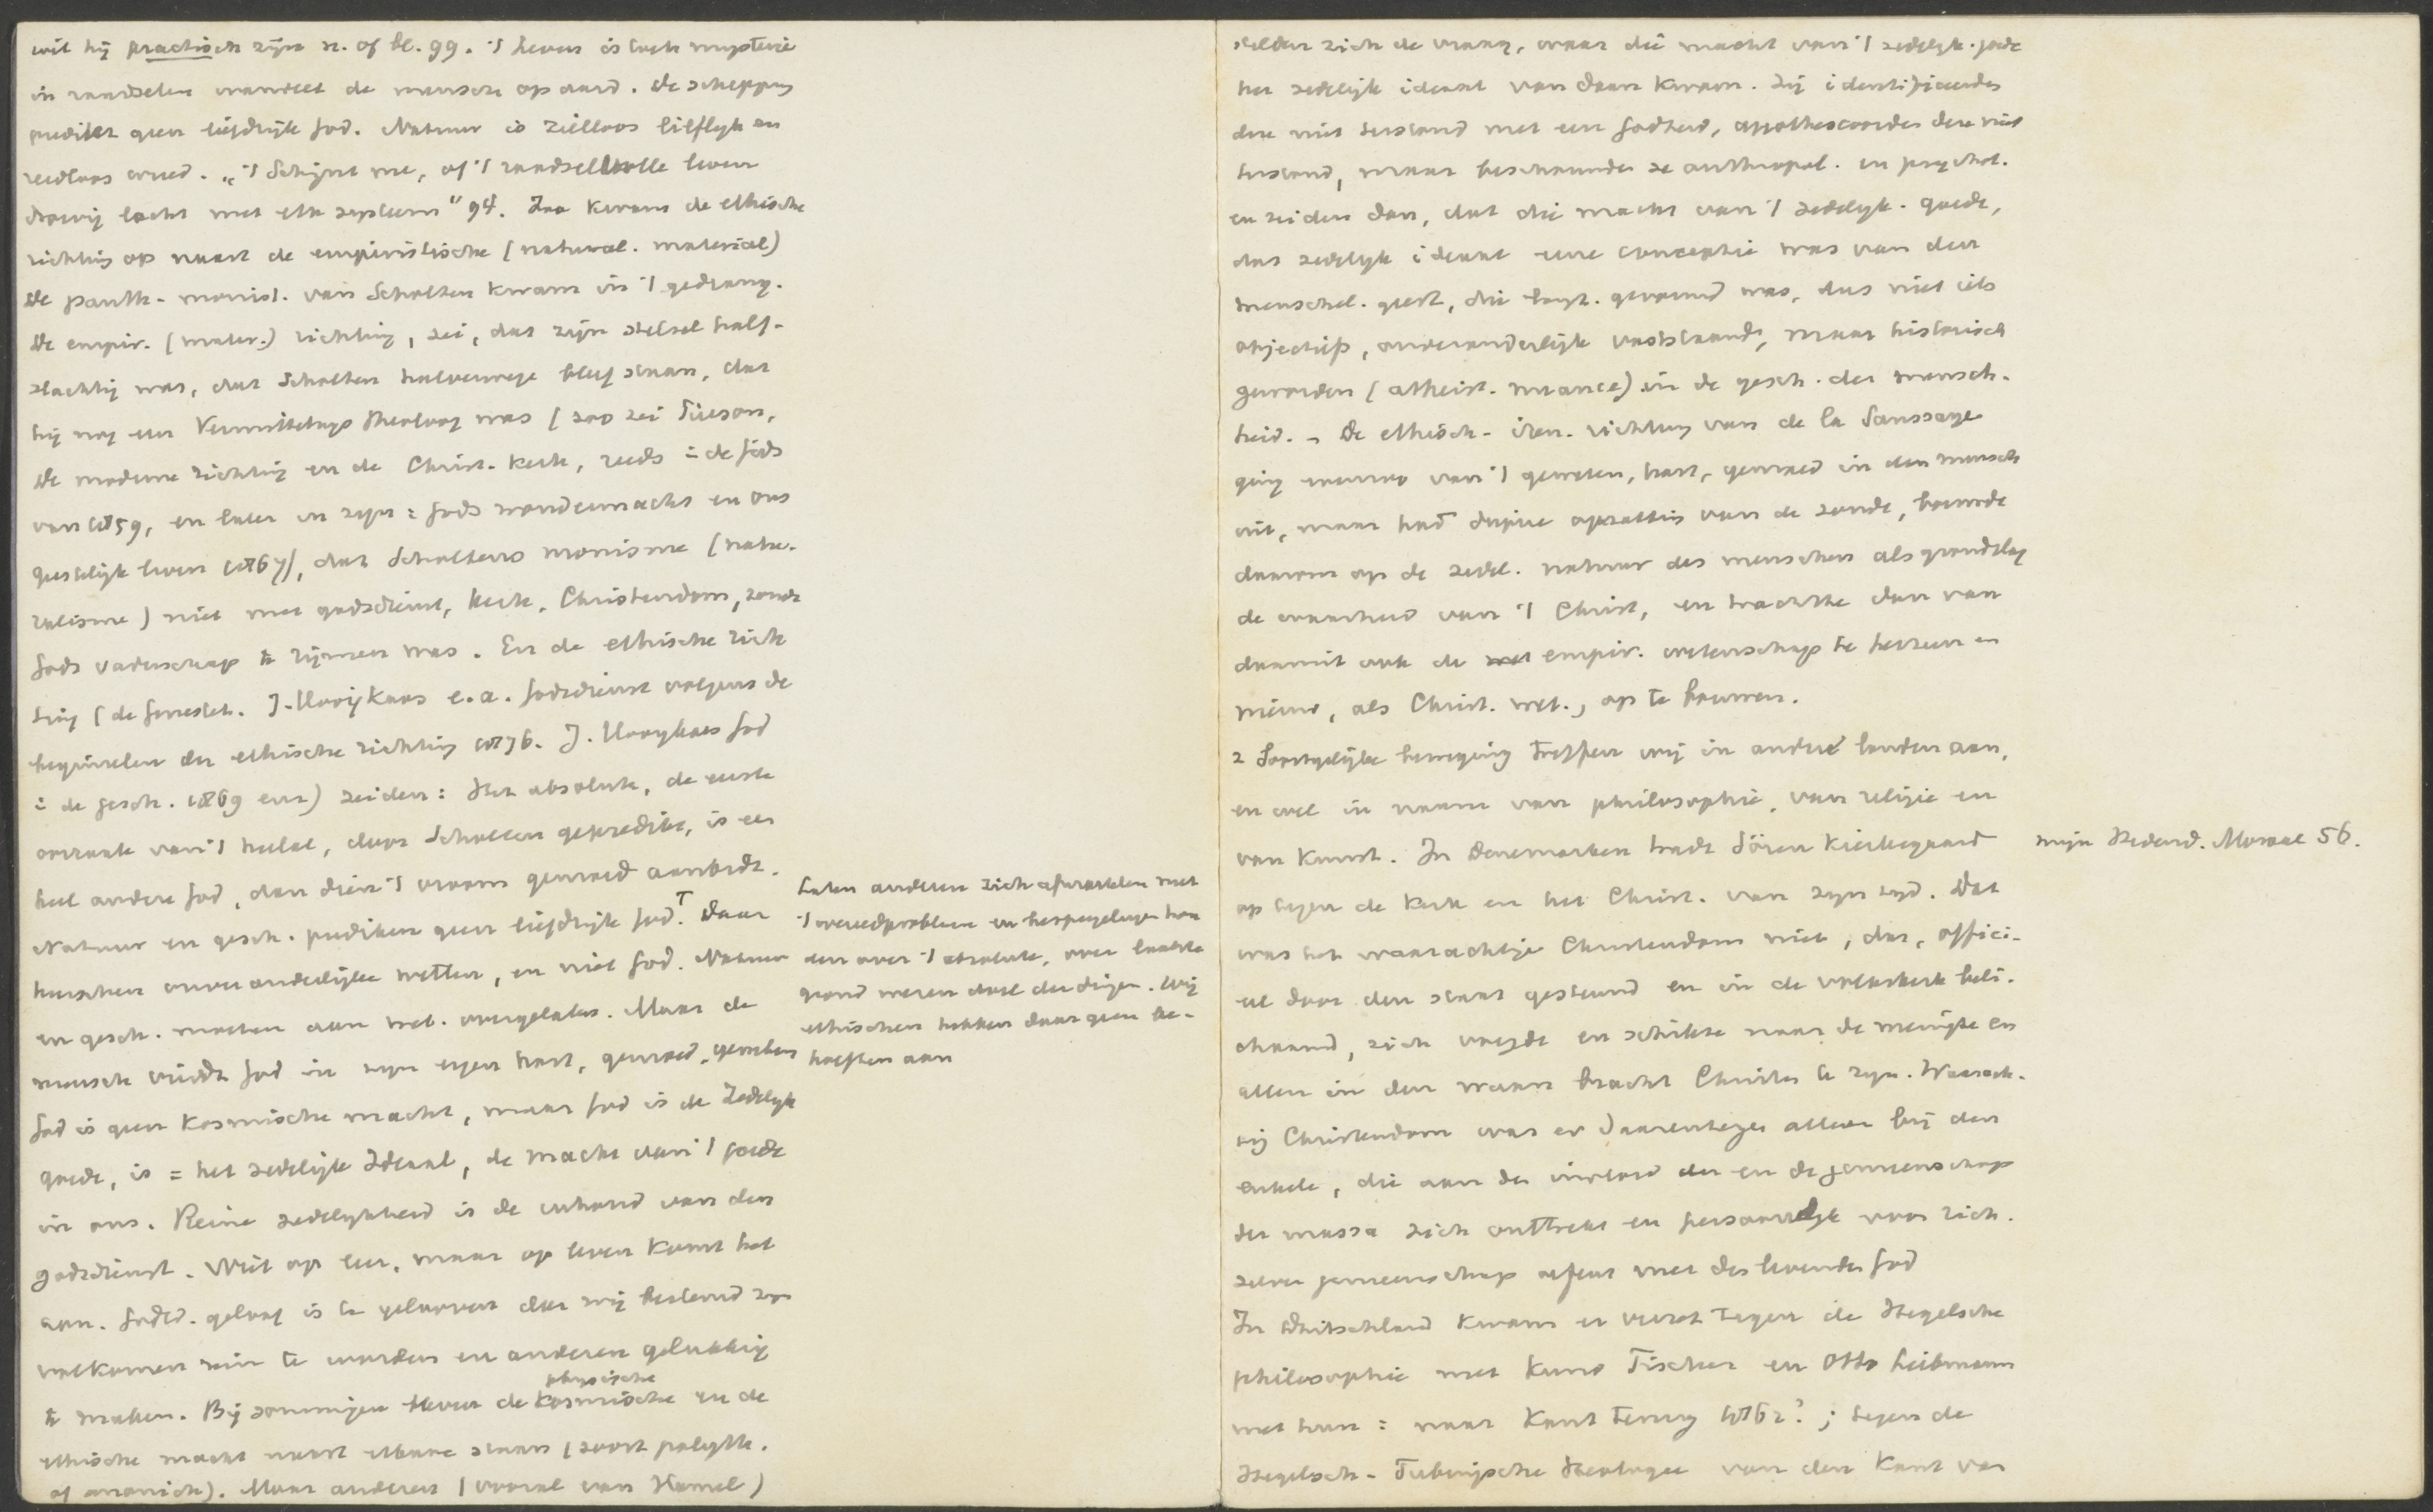 wil hij practisch zijn n. of bl. 99. 't Leven is toch mysterie
in raadselen wandelt de mensch op aard. De schepping
predikt geen liefdrijke God. Natuur is zielloos lieflijk en
redloos wreed. „'t Schijnt me, of 't raadselvolle leven
droevig lacht met elk systeem" 94. Zoo kwam de ethische
richting op naast de empiristische (natural. material)
De panth-monist. van Scholten kwam in 't gedrang.
De empir. (mater.) richting, zei, dat zijn stelsel half-
slachtig was, dat Scholten halverwege bleef staan, dat
hij nog een Vermittelungs Theoloog was (zoo zei Pierson,
De moderne richting en de Christ. kerk, reeds in de Gids
van 1859, en later in zijn: Gods wondermacht en ons
geestelijk leven 1867), dat Scholtens monisme (natu-
ralisme) niet met godsdienst, kerk, Christendom, zonde
Gods vaderschap te rijmen was. En de ethische rich
ting (de Genestet. J. Hooijkaas e.a. Godsdienst volgens de
beginselen der ethische richting 1876. J. Hooykaas God
in de gesch. 1869 enz) zeiden: Het absolute, de eerste
oorzaak van 't heelal, door Scholten gepredikt, is een
heel andere God, dan dien 't vroom gemoed aanbidt.
Natuur en gesch. prediken geen liefdrijke God. T Daar
heerschen onveranderlijke wetten, en niet God. Natuur
en gesch. moeten aan wet. overgelaten. Maar de
mensch vindt God in zijn eigen hart, gemoed, geweten
God is geen kosmische macht, maar God is de Zedelijk
goede, is = het zedelijke Ideaal, de macht van 't goede
in ons. Reine zedelijkheid is de inhoud van den
godsdienst. Niet op leer, maar op leven komt het
aan. Godsd. geloof is te gelooven dat wij bestemd zijn
volkomen rein te worden en anderen gelukkig
physische
te maken. Bij sommigen bleven de kosmische en de
ethische macht naast elkaar staan (soort polyth.
of manich). Maar anderen (vooral van Hamel)
Laten anderen zich afworstelen met
't wereldprobleem en bespiegelingen hou
den over 't absolute, over laatste
grond wezen doel der dingen. Wij
ethischen hebben daar geen be-
hoeften aan
stelden zich de vraag, waar die macht van 't zedelijk. goede
het zedelijk ideaal van daan kwam. Zij identificeerden
deze niet terstond met een Godheid, apotheoseerden deze niet
terstond, maar beschouwden ze anthropol. en psychol.
en zeiden dan, dat die macht van 't zedelijk. goede,
dat zedelijk ideaal eene conceptie was van den
menschel. geest, die langz. gevormd was, dus niet iets
objectiefs, onveranderlijk vaststaand, maar historisch
geworden (atheist. nuance) in de gesch. der mensch-
heid. - De ethisch-iren. richting van de la Saussaye
ging evenzoo van 't geweten, hart, gemoed in den mensch
uit, maar had diepere opvatting van de zonde, bouwde
daarom op de zedel. natuur des menschen als grondslag
de waarheid van 't Christ, en trachtte dan van
daaruit ook de empir. wetenschap te herzien en
nieuw, als Christ. wet., op te bouwen.
2 Soortgelijke beweging treffen wij in andere landen aan,
en wel in naam van philosophie, van religie en
van kunst. In Denemarken tradt Sören Kierkegaard
op tegen de kerk en het Christ. van zijn tijd. Dat
was het waarachtige Christendom niet, dat, offici-
eel door den staat gesteund en in de volkskerk beli-
chaamd, zich voegde en schikte naar de menigte en
allen in den waan bracht Christen te zijn. Waarach-
tig Christendom was er daarentegen alleen bij den
enkele, die aan den invloed der en de gemeenschap
der massa zich onttrekt en persoonlijk voor zich.
zelven gemeenschap oefent met des levenden God
In Duitschland kwam er verzet tegen de Hegelsche
philosophie met Kuno Fischer en Otto Liebmann
met hun: naar Kant terug 1862?; tegen de
Hegelsch-Tubingsche theologie van den kant van
mijn Hedend. Moraal 56.